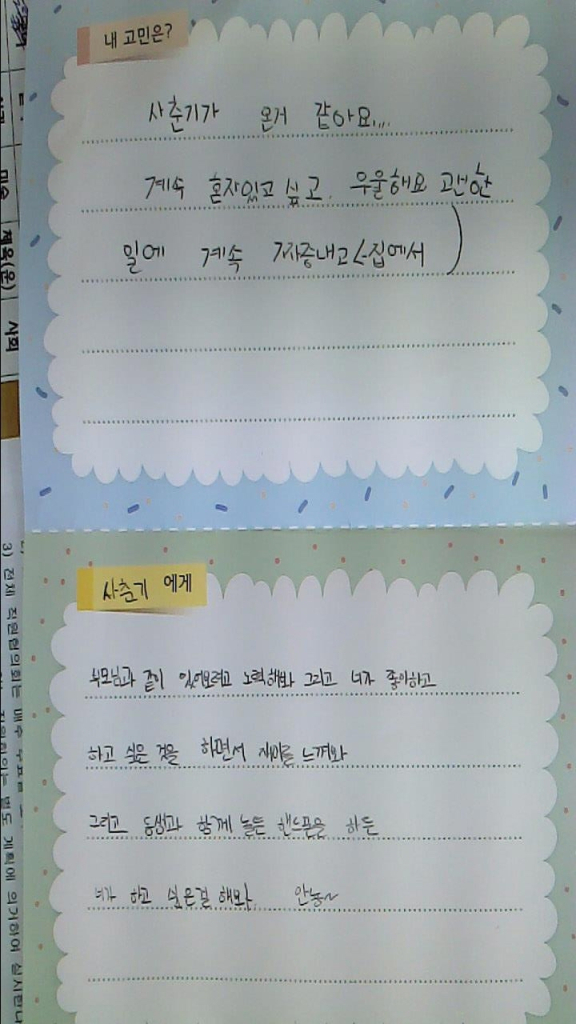 내 고민은?
사춘기가 온거 같아요...
계속 혼자있고 싶고, 우울해요 괜한
일에 계속 짜증내고<-집에서
사춘기 에게
부모님과 같이 있어보려고 노력해봐 그리고 너가 좋아하고
하고 싶은 것을 하면서 재미를 느껴봐
그리고 동생과 함께 놀든 핸드폰을 하든
너가 하고 싶은걸 해봐. 안농~
미술
체육(운)
사회
3) 전체 직원협의회는 매주
계획에 의거하여 실시한다